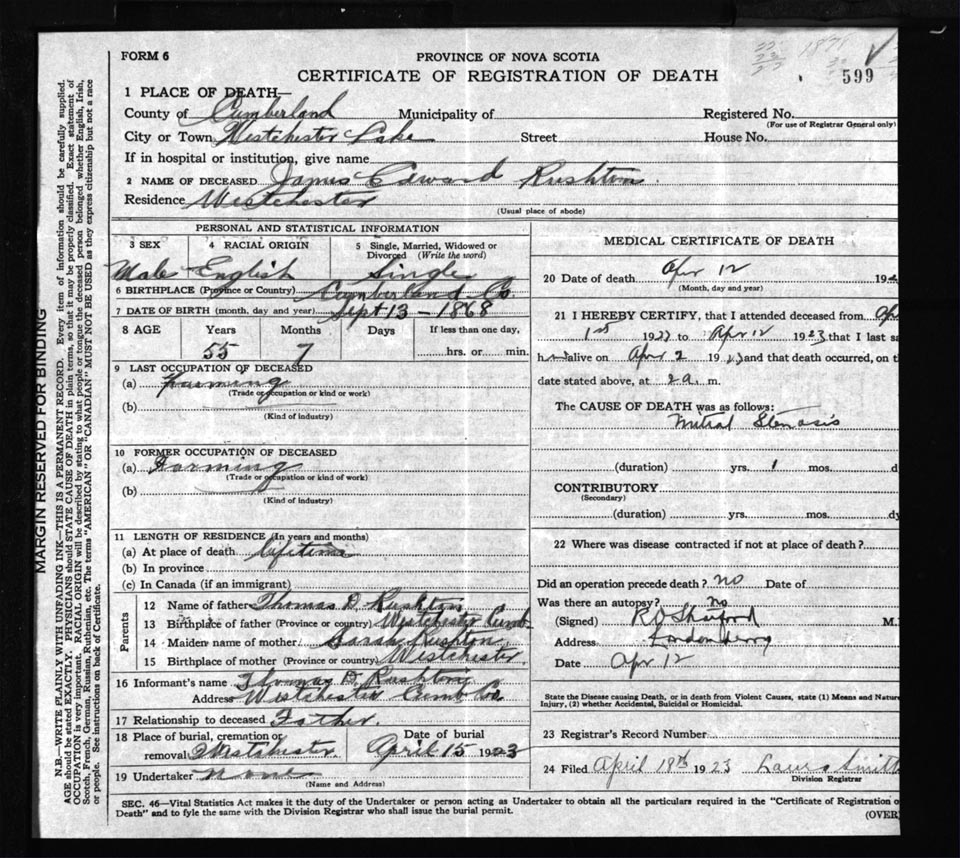 FORM 6
PROVINCE OF NOVA SCOTIA
CERTIFICATE OF REGISTRATION OF DEATH
599
1 PLACE OF DEATH—
County of Cumberland Municipality of Registered No.
(For use of Registrar General only)
City or Town Westchester Lake Street House No.
If in hospital or institution, give name
2 NAME OF DECEASED James Edward Rushton.
Residence Westchester
(Usual place of abode)
PERSONAL AND STATISTICAL INFORMATION
3 SEX 4 RACIAL ORIGIN 5 Single, Married, Widowed or Divorced (Write the word)
Male English Single
6 BIRTHPLACE (Province or Country) Cumberland Co.
7 DATE OF BIRTH (month, day and year) Sept 13 - 1868
8 AGE Years Months Days If less than one day,
55 7 hrs. or min.
9 LAST OCCUPATION OF DECEASED
(a) Farming
(Trade or occupation or kind or work)
(b)
(Kind of industry)
10 FORMER OCCUPATION OF DECEASED
(a) Farming
(Trade or occupation or kind of work)
(b)
(Kind of industry)
11 LENGTH OF RESIDENCE (In years and months)
(a) At place of death lifetime
(b) In province
(c) In Canada (if an immigrant)
Parents
12 Name of father Thomas D. Rushton
13 Birthplace of father (Province or country) Westchester Cumb.
14 Maiden name of mother Sarah Rushton
15 Birthplace of mother (Province or country) Westchester.
16 Informant's name Thomas D. Rushton
Address Westchester Cumb Co.
17 Relationship to deceased Father.
18 Place of burial, cremation or removal Westchester. Date of burial April 15 1923
19 Undertaker none
(Name and Address)
MEDICAL CERTIFICATE OF DEATH
20 Date of death Apr 12 192
(Month, day and year)
21 I HEREBY CERTIFY, that I attended deceased from Apr
1st 1923 to Apr 12 1923 that I last sa
h alive on Apr 2 1923 and that death occurred, on th
date stated above, at 2 a. m.
The CAUSE OF DEATH was as follows:
Mitral Stenosis
(duration) yrs. 1 mos. dy
CONTRIBUTORY
(Secondary)
(duration) yrs. mos. dy
22 Where was disease contracted if not at place of death?
Did an operation precede death? no Date of
Was there an autopsy? no
(Signed) M.
Address Londonderry
Date Apr 12
State the Disease causing Death, or in death from Violent Causes, state (1) Means and Nature
Injury, (2) whether Accidental, Suicidal or Homicidal.
23 Registrar's Record Number
24 Filed April 18th 1923 Laura Smith
Division Registrar
SEC. 46—Vital Statistics Act makes it the duty of the Undertaker or person acting as Undertaker to obtain all the particulars required in the "Certificate of Registration o
Death" and to fyle the same with the Division Registrar who shall issue the burial permit.
(OVER)
MARGIN RESERVED FOR BINDING
N.B.—WRITE PLAINLY WITH UNFADING INK—THIS IS A PERMANENT RECORD. Every item of information should be carefully supplied.
AGE should be stated EXACTLY. PHYSICIANS should STATE CAUSE OF DEATH in plain terms, so that it may be properly classified. Exact statement of
OCCUPATION is very important. RACIAL ORIGIN will be described by stating to what people or tongue the deceased person belonged whether English, Irish,
Scotch, French, German, Russian, Ruthenian, etc. The terms "AMERICAN" OR "CANADIAN" MUST NOT BE USED as they express citizenship but not a race
or people. See instructions on back of Certificate.